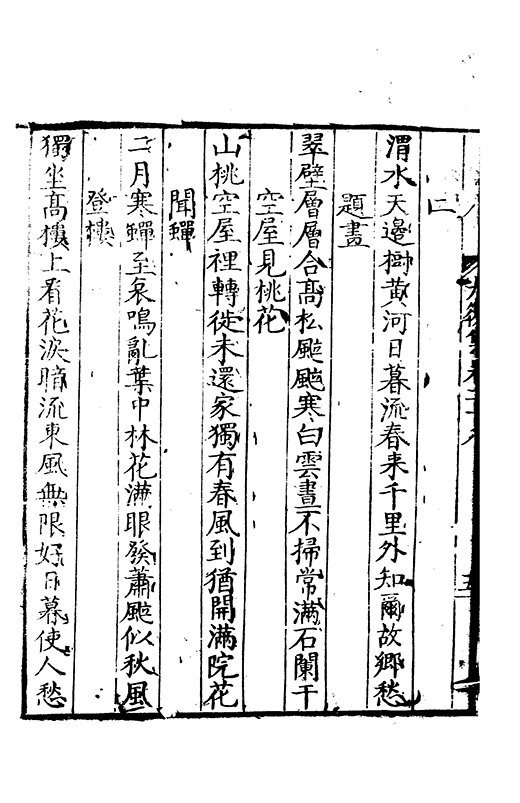 二
渭水天邊樹黃河日暮流春来千里外知爾故鄉愁
題畫
翠壁層層合高松颼颼寒白雲晝不掃常滿石闌干
空屋見桃花
山桃空屋裡轉徙未還家獨有春風到猶開滿院花
聞蟬
二月寒蟬至哀鳴亂葉中林花滿眼發蕭颼似秋風
登樓
獨坐高樓上看花淚暗流東風無限好日暮使人愁